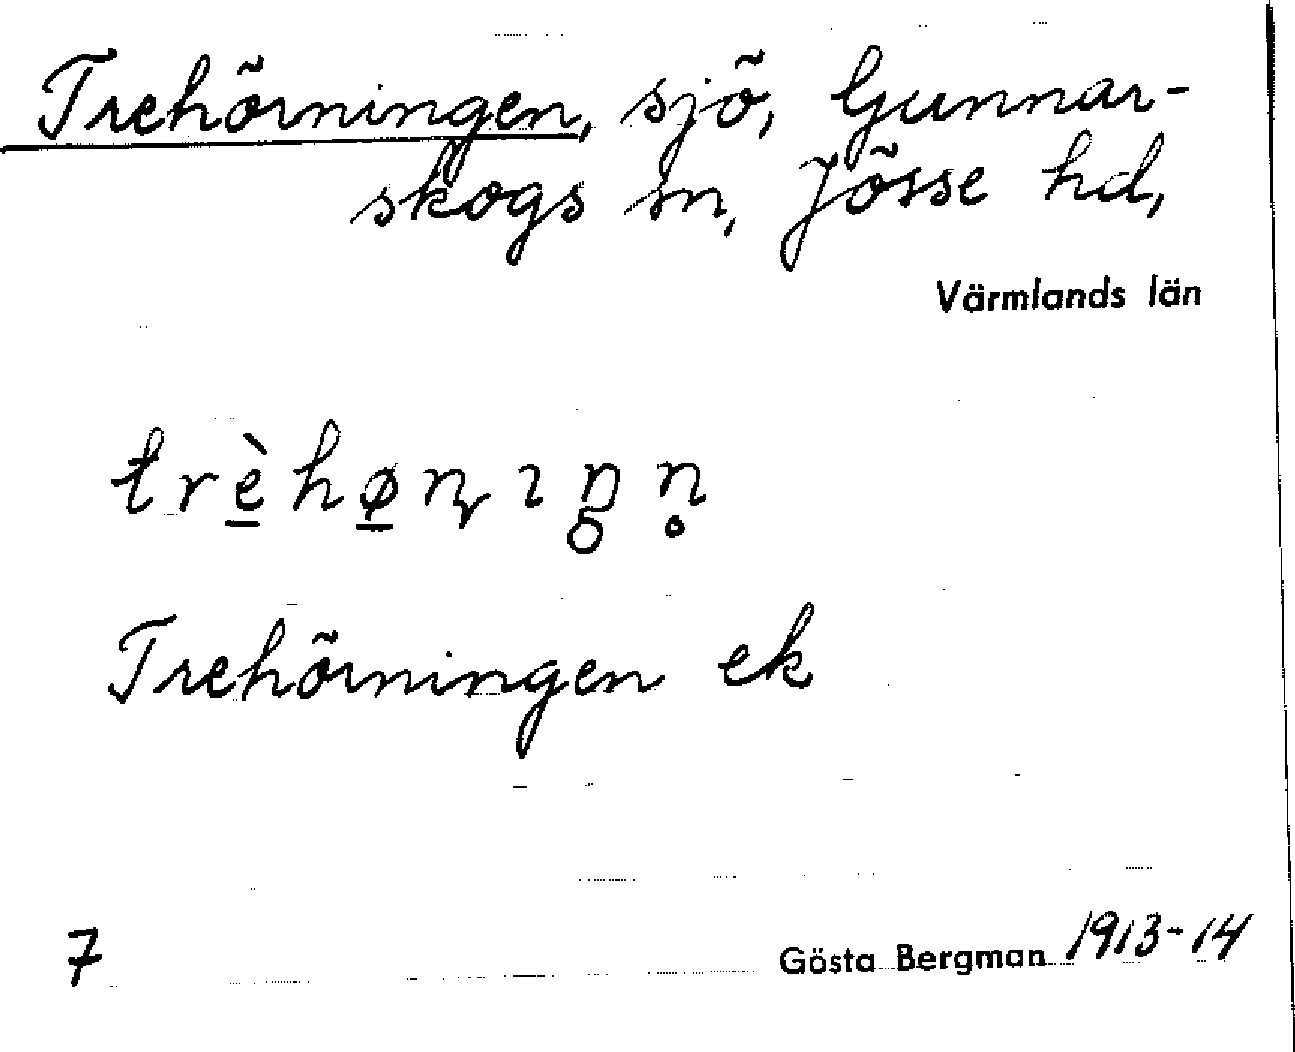 Trehörningen, sjö, Gunnar-
skogs sn, Jösse hd,
Värmlands län
trèhøɳıŋn̥
Trehörningen ek
7
Gösta Bergman 1913-14